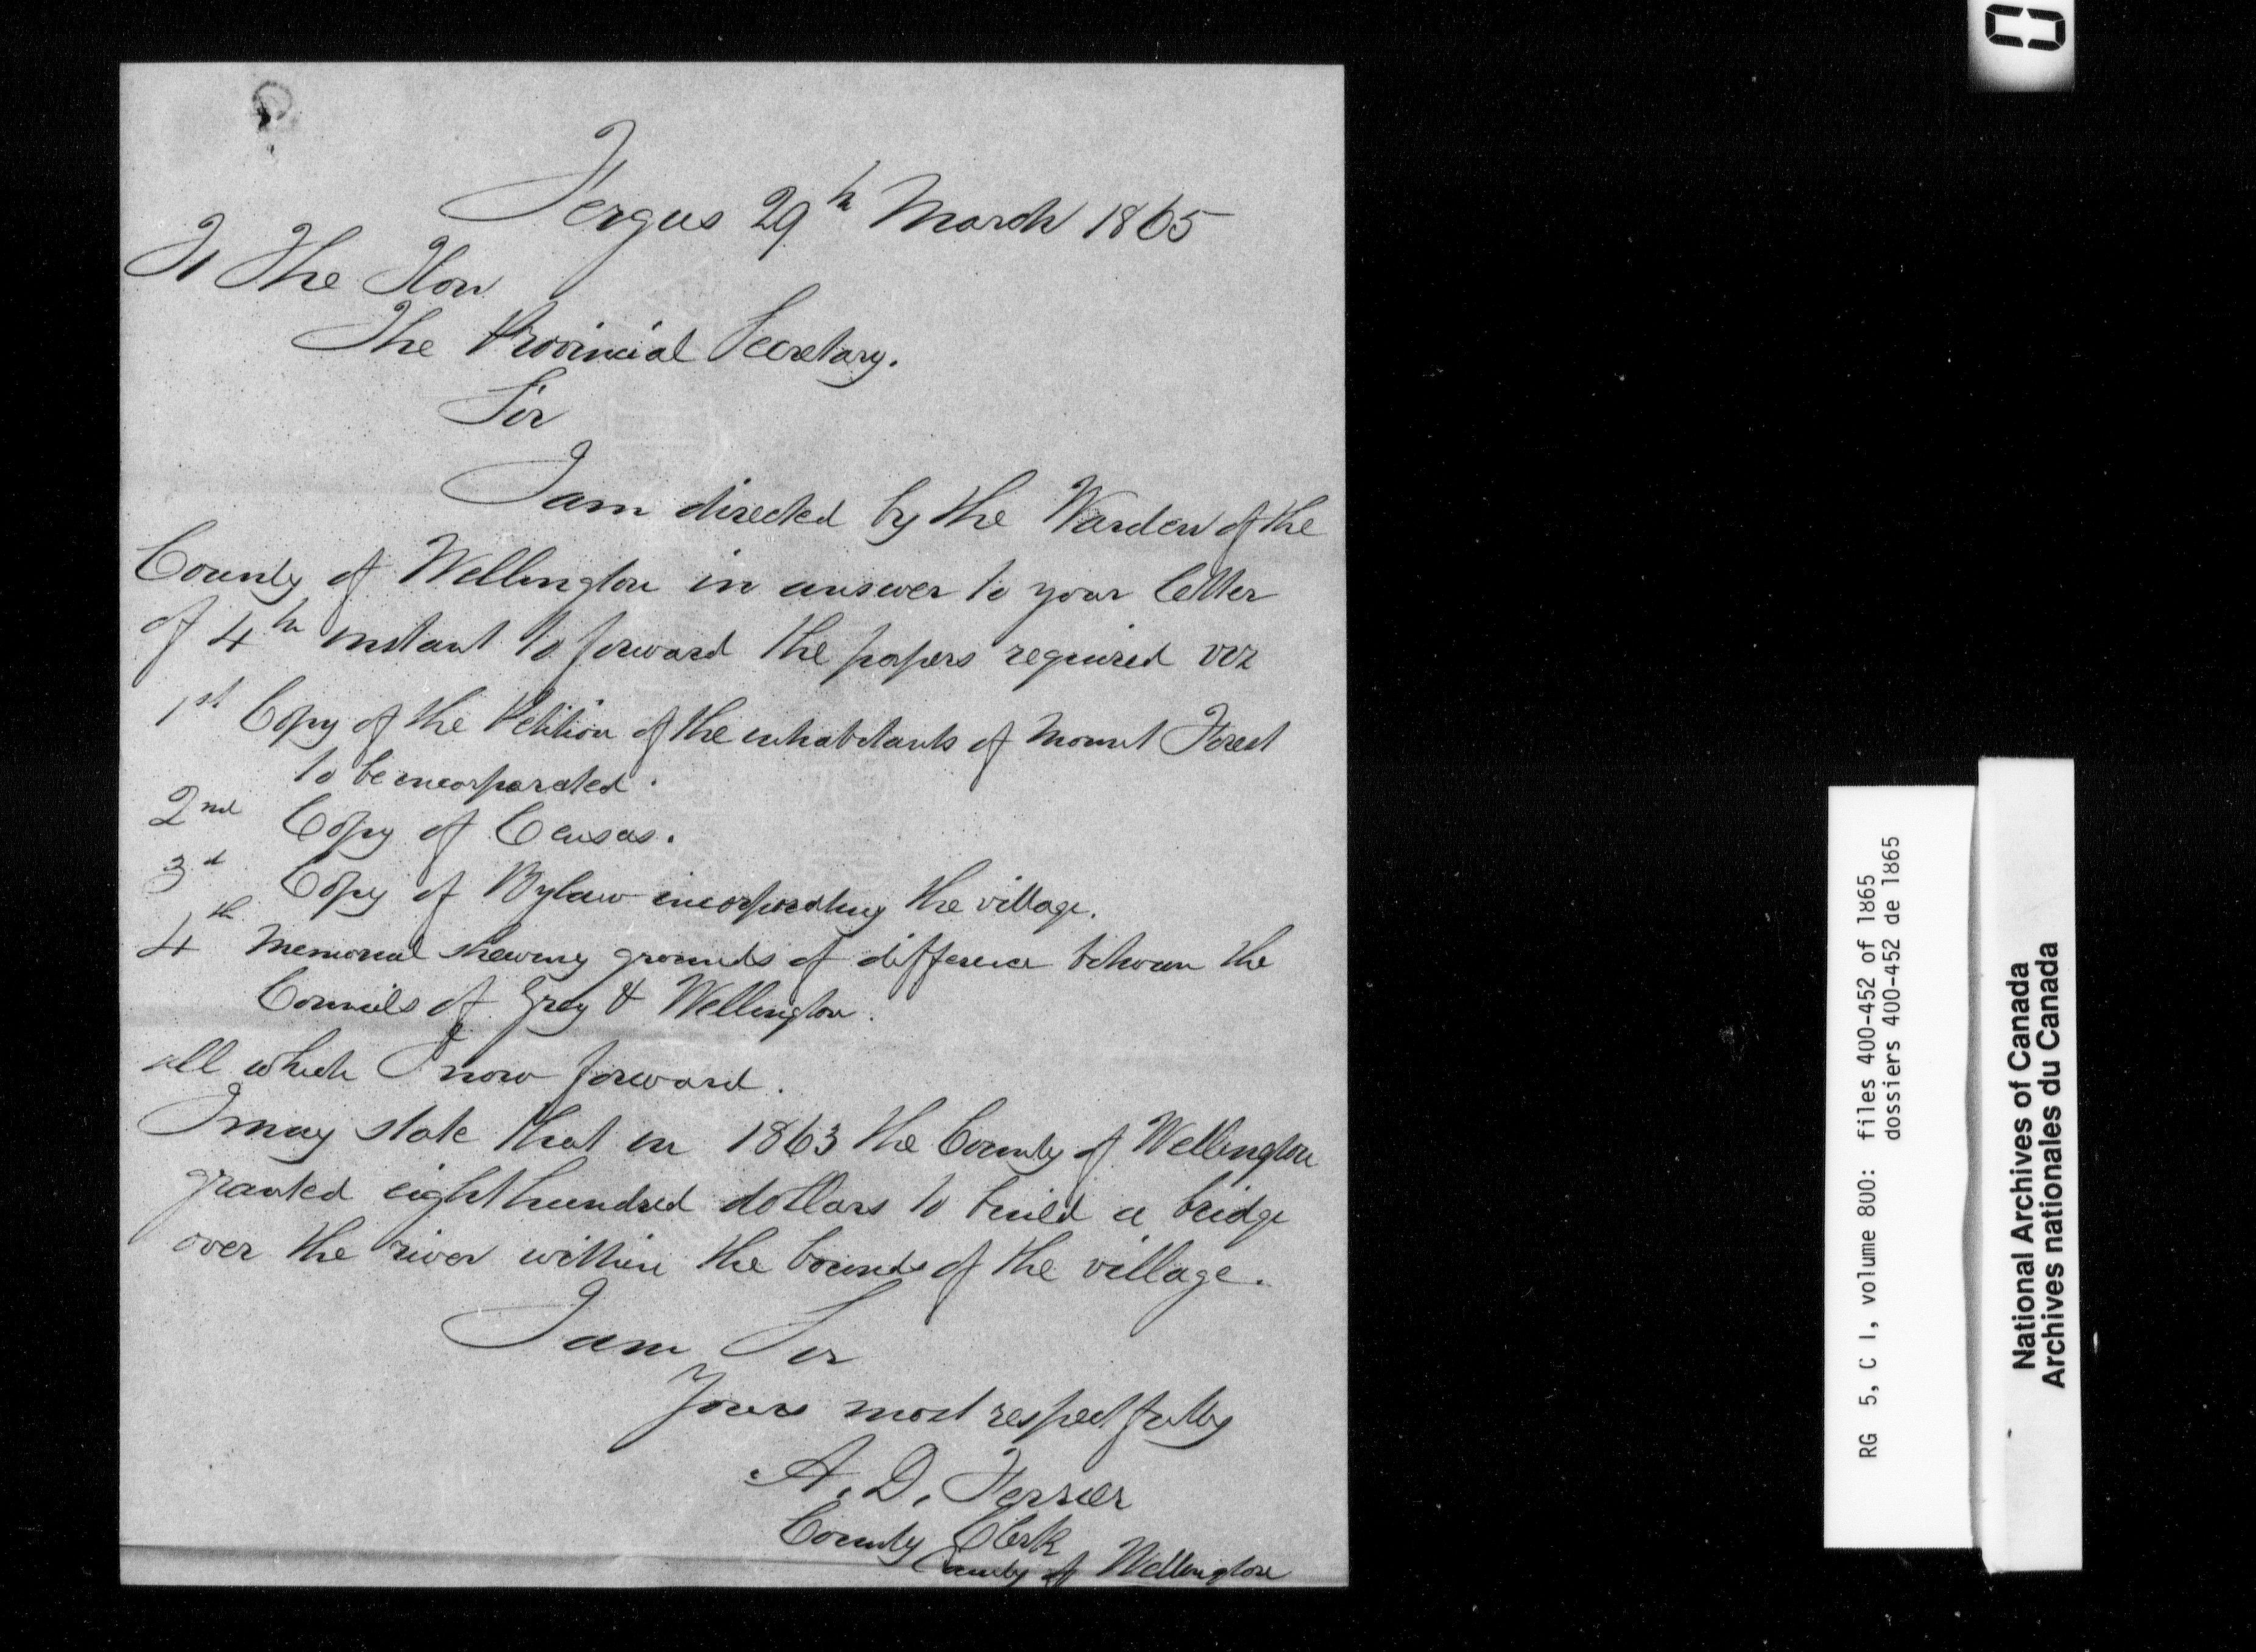 Fergus 29th March 1865
To The Hon
The Provincial Secretary.
Sir
I am directed by the Warden of the
County of Wellington in answer to your letter
of 4th instant to forward the papers required viz
1st Copy of the Petition of the inhabitants of Mount Forest
to be incorporated.
2nd Copy of Census.
3d Copy of Bylaw incorporating the village.
4th Memorial shewing grounds of difference between the
Councils of Grey & Wellington.
all which I now forward.
I may state that in 1863 the County of Wellington
granted eight hundred dollars to build a bridge
over the river within the bounds of the village.
I am Sir
Yours most respectfully
A. D. Ferrier
County Clerk
County of Wellington
RG 5, C 1, volume 800: files 400-452 of 1865
dossiers 400-452 de 1865
National Archives of Canada
Archives nationales du Canada